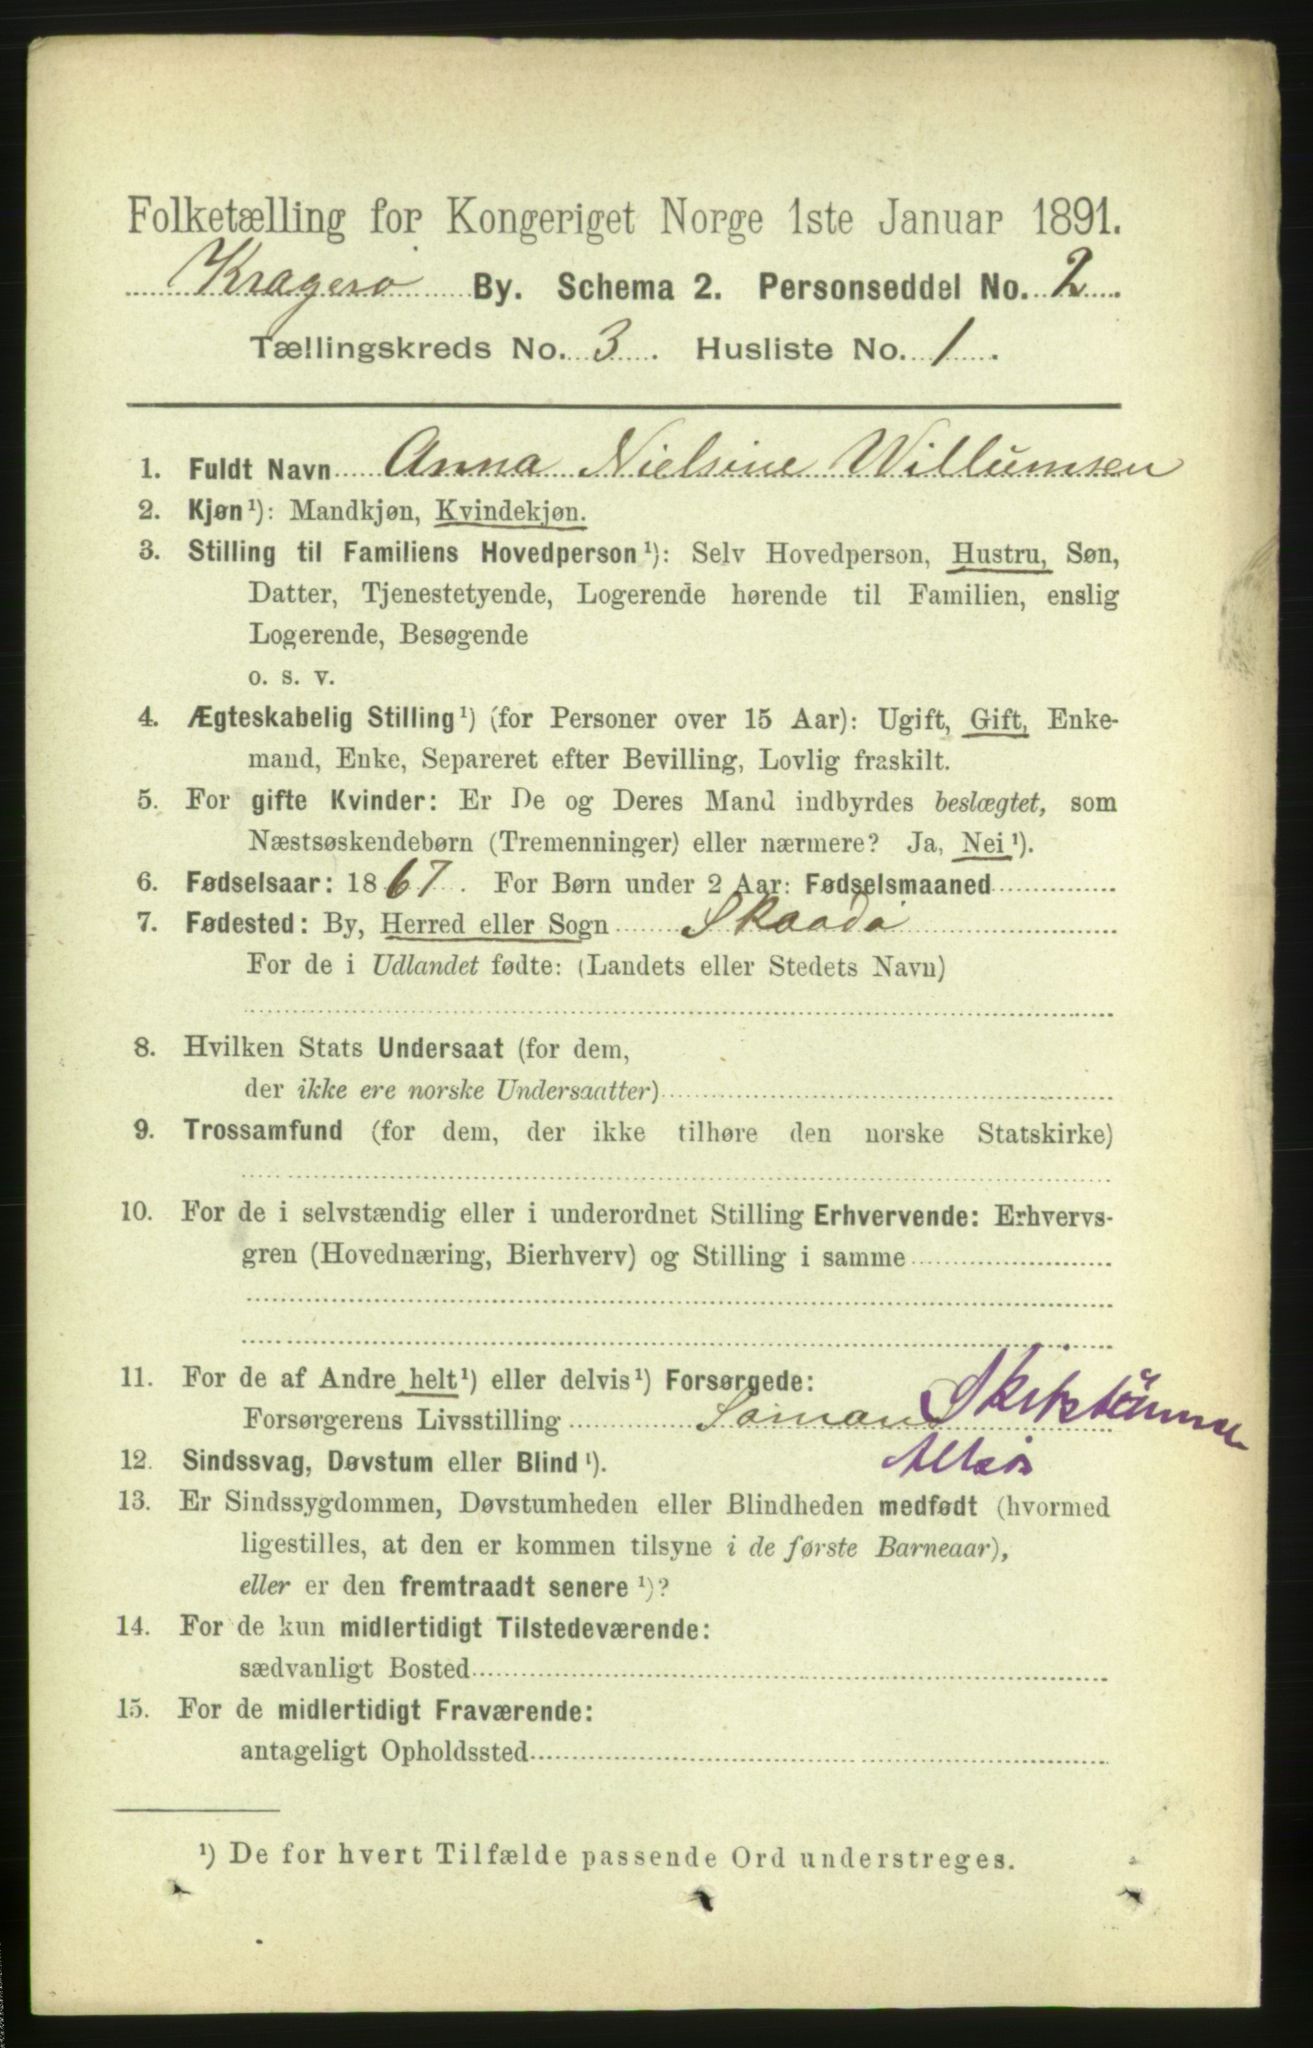 Folketælling for Kongeriget Norge 1ste Januar 1891.
Kragerø By. Schema 2. Personseddel No. 2.
Tællingskreds No. 3. Husliste No. 1.
1. Fuldt Navn Anna Nielsine Willumsen
2. Kjøn ¹): Mandkjøn, Kvindekjøn.
3. Stilling til Familiens Hovedperson ¹): Selv Hovedperson, Hustru, Søn,
Datter, Tjenestetyende, Logerende hørende til Familien, enslig
Logerende, Besøgende
o. s. v.
4. Ægteskabelig Stilling ¹) (for Personer over 15 Aar): Ugift, Gift, Enke-
mand, Enke, Separeret efter Bevilling, Lovlig fraskilt.
5. For gifte Kvinder: Er De og Deres Mand indbyrdes beslægtet, som
Næstsøskendebørn (Tremenninger) eller nærmere? Ja, Nei ¹).
6. Fødselsaar: 1867. For Børn under 2 Aar: Fødselsmaaned
7. Fødested: By, Herred eller Sogn Skaadø
For de i Udlandet fødte: (Landets eller Stedets Navn)
8. Hvilken Stats Undersaat (for dem,
der ikke ere norske Undersaatter)
9. Trossamfund (for dem, der ikke tilhøre den norske Statskirke)
10. For de i selvstændig eller i underordnet Stilling Erhvervende: Erhvervs-
gren (Hovednæring, Bierhverv) og Stilling i samme
11. For de af Andre helt ¹) eller delvis ¹) Forsørgede:
Forsørgerens Livsstilling
12. Sindssvag, Døvstum eller Blind ¹).
13. Er Sindssygdommen, Døvstumheden eller Blindheden medfødt (hvormed
ligestilles, at den er kommen tilsyne i de første Barneaar),
eller er den fremtraadt senere ¹)?
14. For de kun midlertidigt Tilstedeværende:
sædvanligt Bosted
15. For de midlertidigt Fraværende:
antageligt Opholdssted
¹) De for hvert Tilfælde passende Ord understreges.